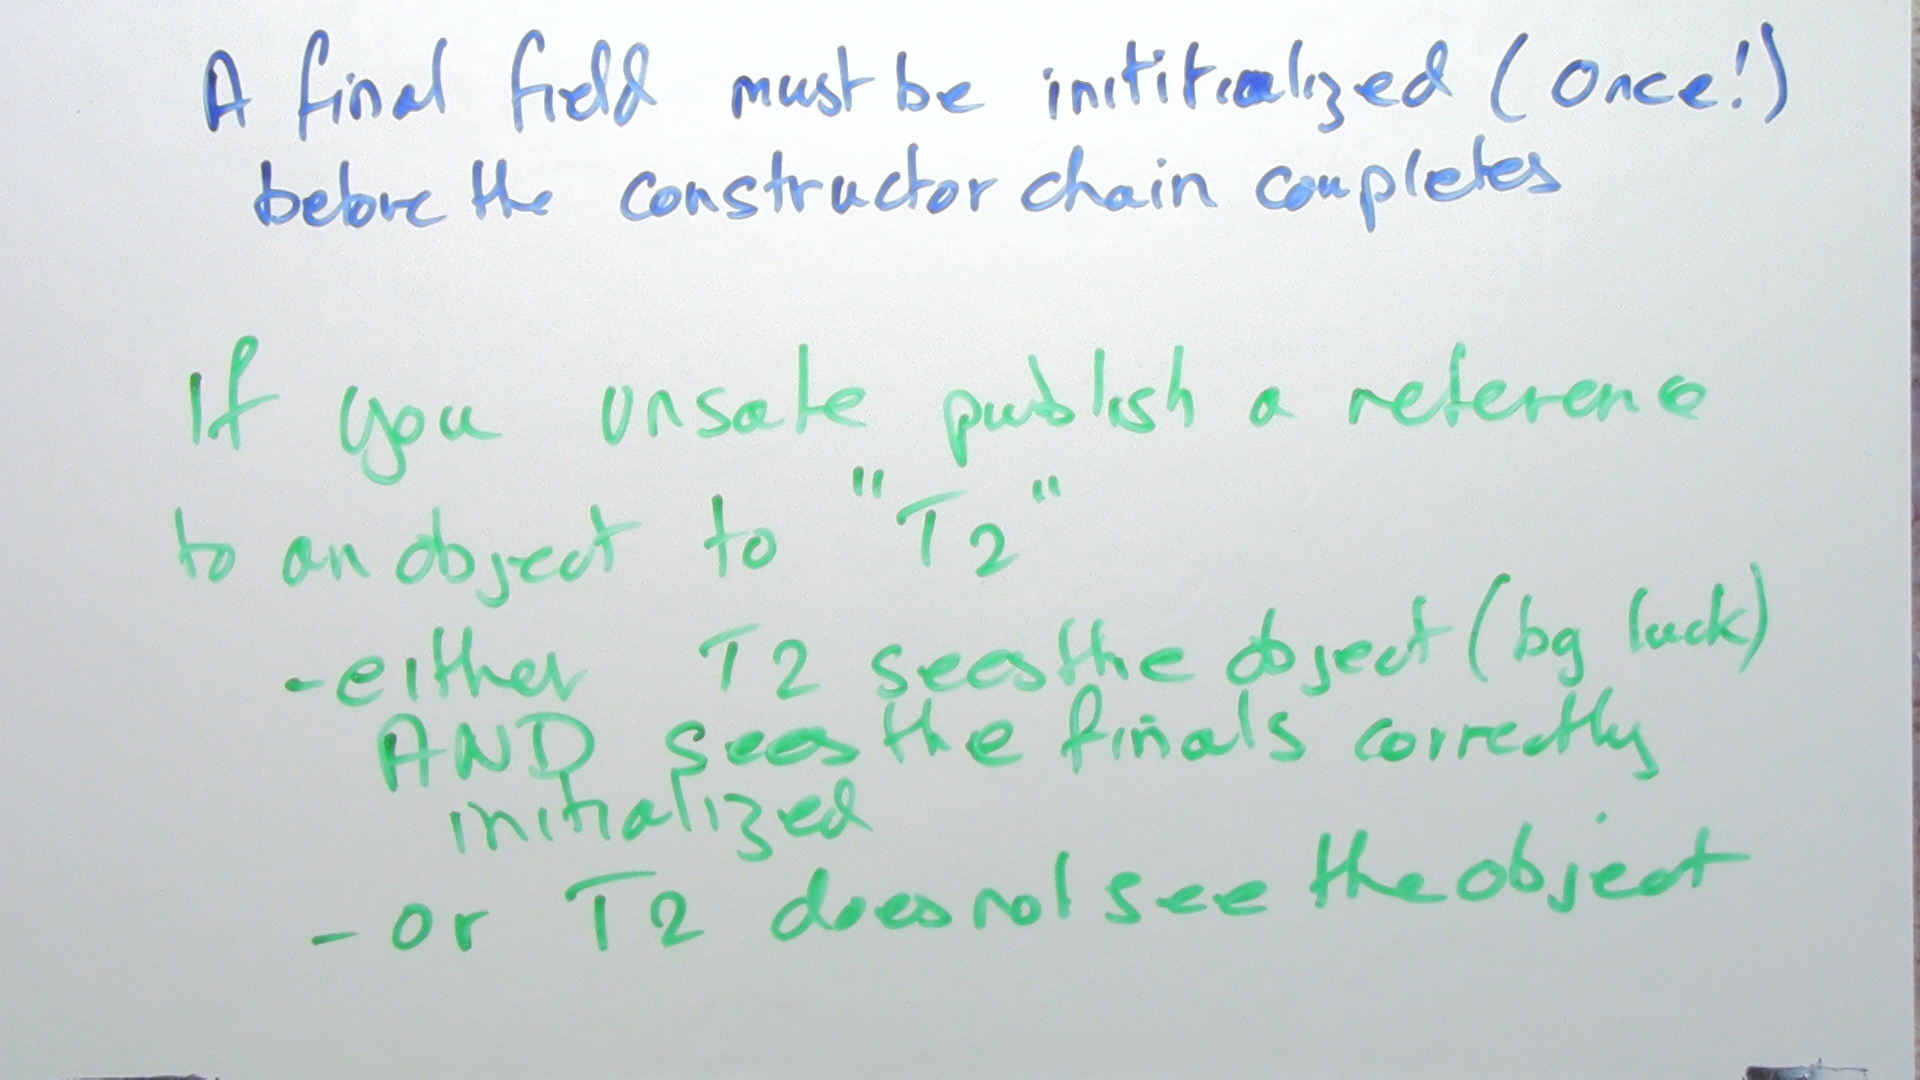 A final field must be inititialized (once!)
before the constructor chain completes
If you unsafe publish a reference
to an object to "T2"
- either T2 sees the object (by luck)
AND sees the finals correctly
initialized
- or T2 does not see the object